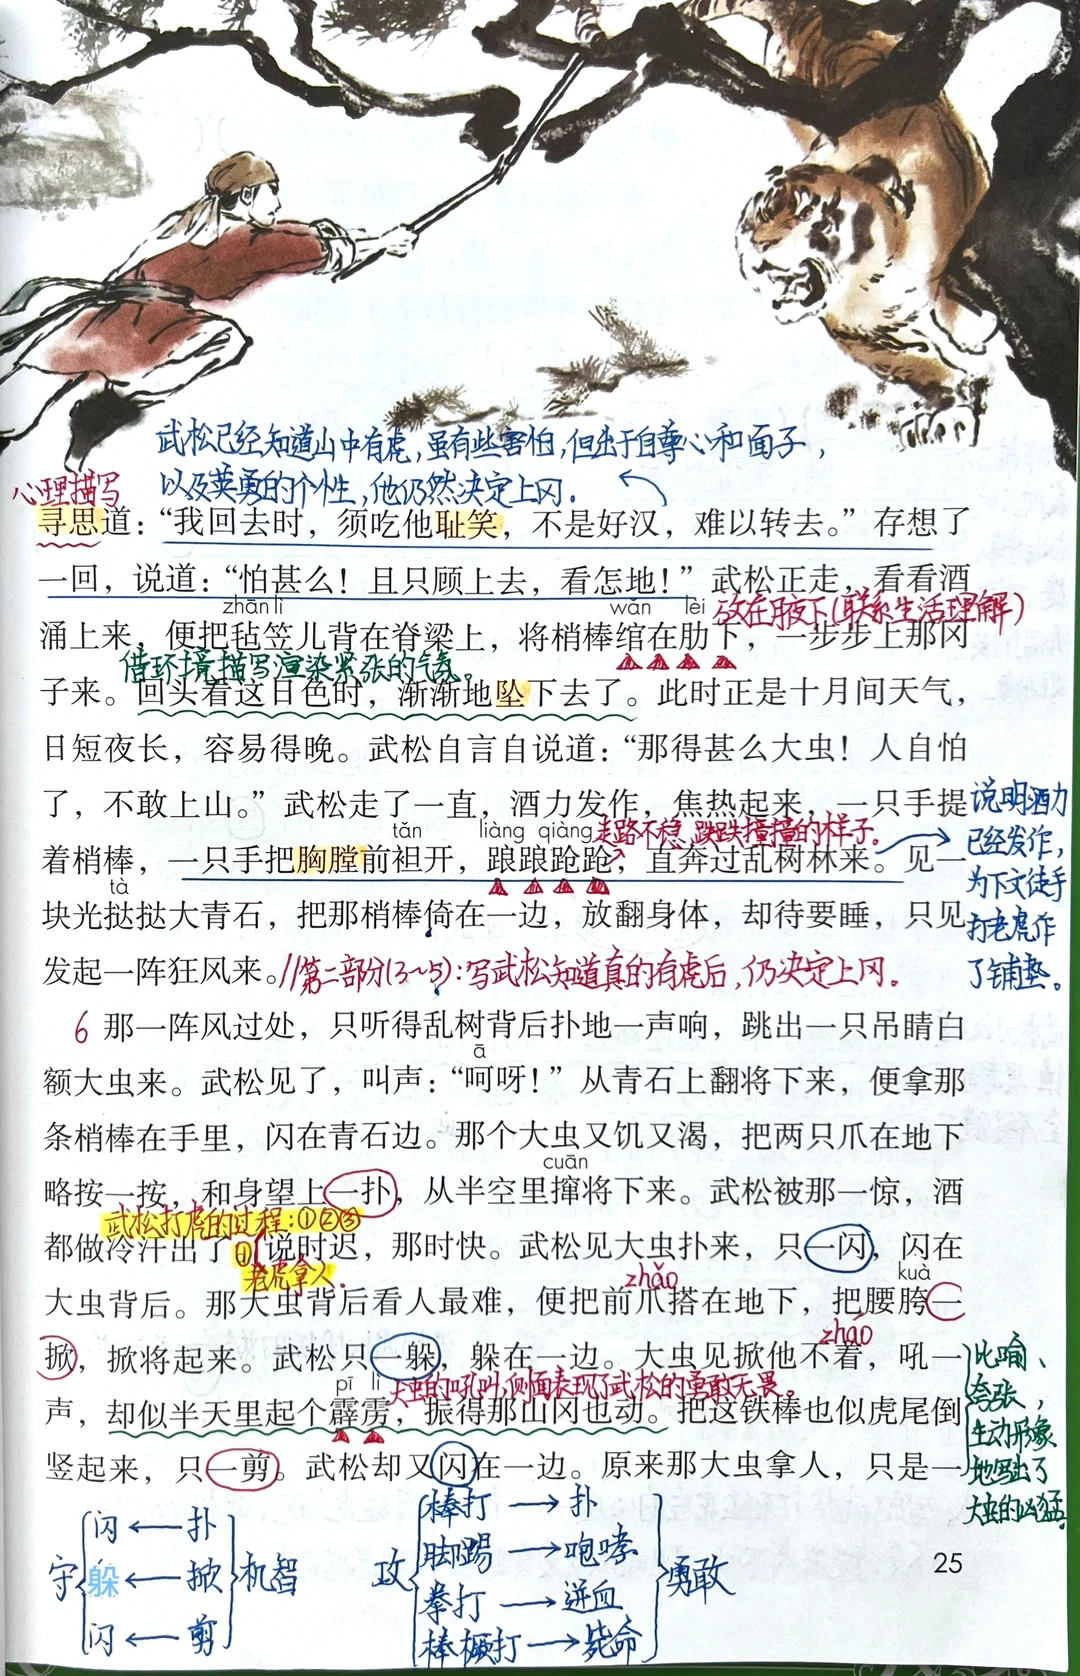 武松已经知道山中有虎,虽有些害怕,但出于自尊心和面子,
心理描写
以及英勇的个性,他仍然决定上冈.
寻思道：“我回去时，须吃他耻笑，不是好汉，难以转去。”存想了
一回，说道：“怕甚么！且只顾上去，看怎地！”武松正走，看看酒
zhān lì
wǎn
lèi
放在腋下(联系生活理解)
涌上来，便把毡笠儿背在脊梁上，将梢棒绾在肋下，一步步上那冈
借环境描写渲染紧张的气氛。
子来。回头看这日色时，渐渐地坠下去了。此时正是十月间天气，
日短夜长，容易得晚。武松自言自说道：“那得甚么大虫！人自怕
了，不敢上山。”武松走了一直，酒力发作，焦热起来，一只手提
tǎn
liàng qiàng
走路不稳,跌跌撞撞的样子.
着梢棒，一只手把胸膛前袒开，踉踉跄跄，直奔过乱树林来。见一
说明酒力
已经发作,
为下文徒手
打老虎作
了铺垫。
tà
块光挞挞大青石，把那梢棒倚在一边，放翻身体，却待要睡，只见
发起一阵狂风来。//第二部分(3~5):写武松知道真的有虎后,仍决定上冈.
6 那一阵风过处，只听得乱树背后扑地一声响，跳出一只吊睛白
ā
额大虫来。武松见了，叫声：“呵呀！”从青石上翻将下来，便拿那
条梢棒在手里，闪在青石边。那个大虫又饥又渴，把两只爪在地下
cuān
略按一按，和身望上一扑，从半空里撺将下来。武松被那一惊，酒
武松打虎的过程:①②③
都做冷汗出了①说时迟，那时快。武松见大虫扑来，只一闪，闪在
老虎拿人.
zhǎo
kuà
大虫背后。那大虫背后看人最难，便把前爪搭在地下，把腰胯一
zháo
掀，掀将起来。武松只一躲，躲在一边。大虫见掀他不着，吼一
pī lì
大虫的吼叫,侧面表现了武松的勇敢无畏。
声，却似半天里起个霹雳，振得那山冈也动。把这铁棒也似虎尾倒
竖起来，只一剪。武松却又闪在一边。原来那大虫拿人，只是一
比喻、
夸张,
生动形象
地写出了
大虫的凶猛.
守 闪←扑
躲←掀 机智
闪←剪
攻 棒打→扑
脚踢→咆哮
拳打→迸血
棒橛打→毙命
勇敢
25